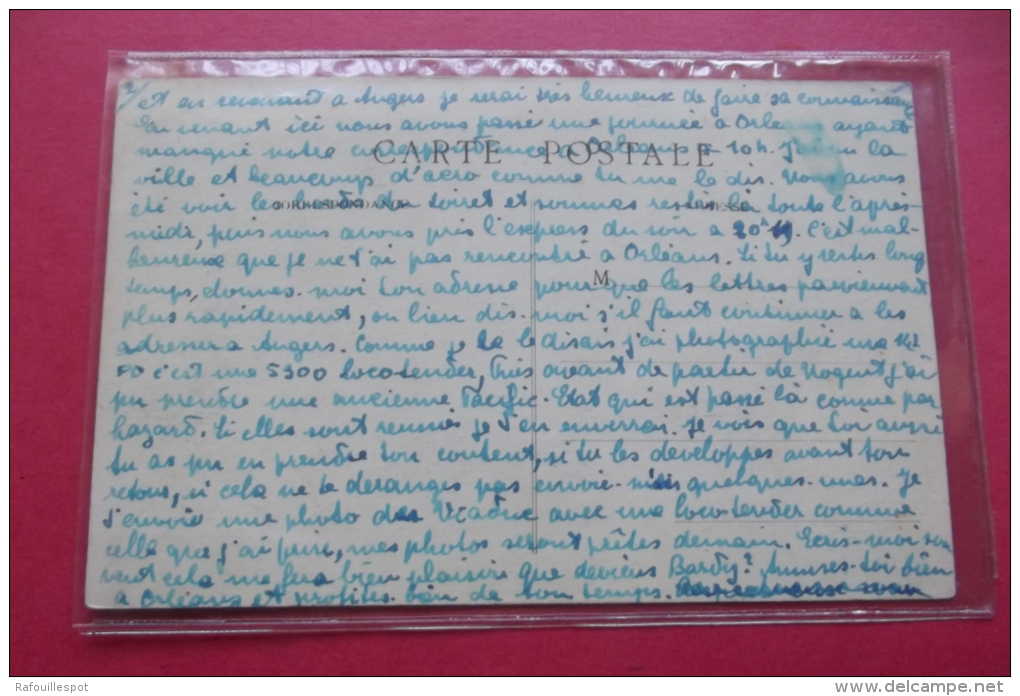 2/ et en revenant a Angers je serai très heureux de faire sa connaissance
En venant ici nous avons passé une journée à Orléans ayant
manqué notre correspondance a Orléans a 10h. J'ai vu la
CARTE POSTALE
ville et beaucoup d'aero comme tu me le dis. Nous avons
été voir les bords du Loiret et sommes resté là toute l'après-
CORRESPONDANCE
ADRESSE
midi, puis nous avons pris l'express du soir a 20h19. C'est mal-
heureux que je ne t'ai pas rencontré à Orléans. Si tu y restes long
M
temps, donnes-moi ton adresse pour que les lettres parviennent
plus rapidement, ou bien dis-moi s'il faut continuer a les
adresser a Angers. Comme je te le disais j'ai photographié une
PO c'est une 5300 loco-tender, Puis avant de partir de Nogent j'ai
pu prendre une ancienne Pacific-Etat qui est passé là comme par
hazard. Si elles sont reussies je t'en enverrai. Je vois que toi aussi
tu as pu en prendre ton content, si tu les developpes avant ton
retour, si cela ne te deranges pas envoie-m'en quelques-unes. Je
t'envoie une photo du Viaduc avec une loco-tender comme
celle que j'ai prise, mes photos seront prêtes demain. Ecris-moi sou
vent cela me fera bien plaisir que deviens Bardy? Amuses-toi bien
a Orléans et profites bien de ton temps.
Rafouillespot
http://www.delcampe.net